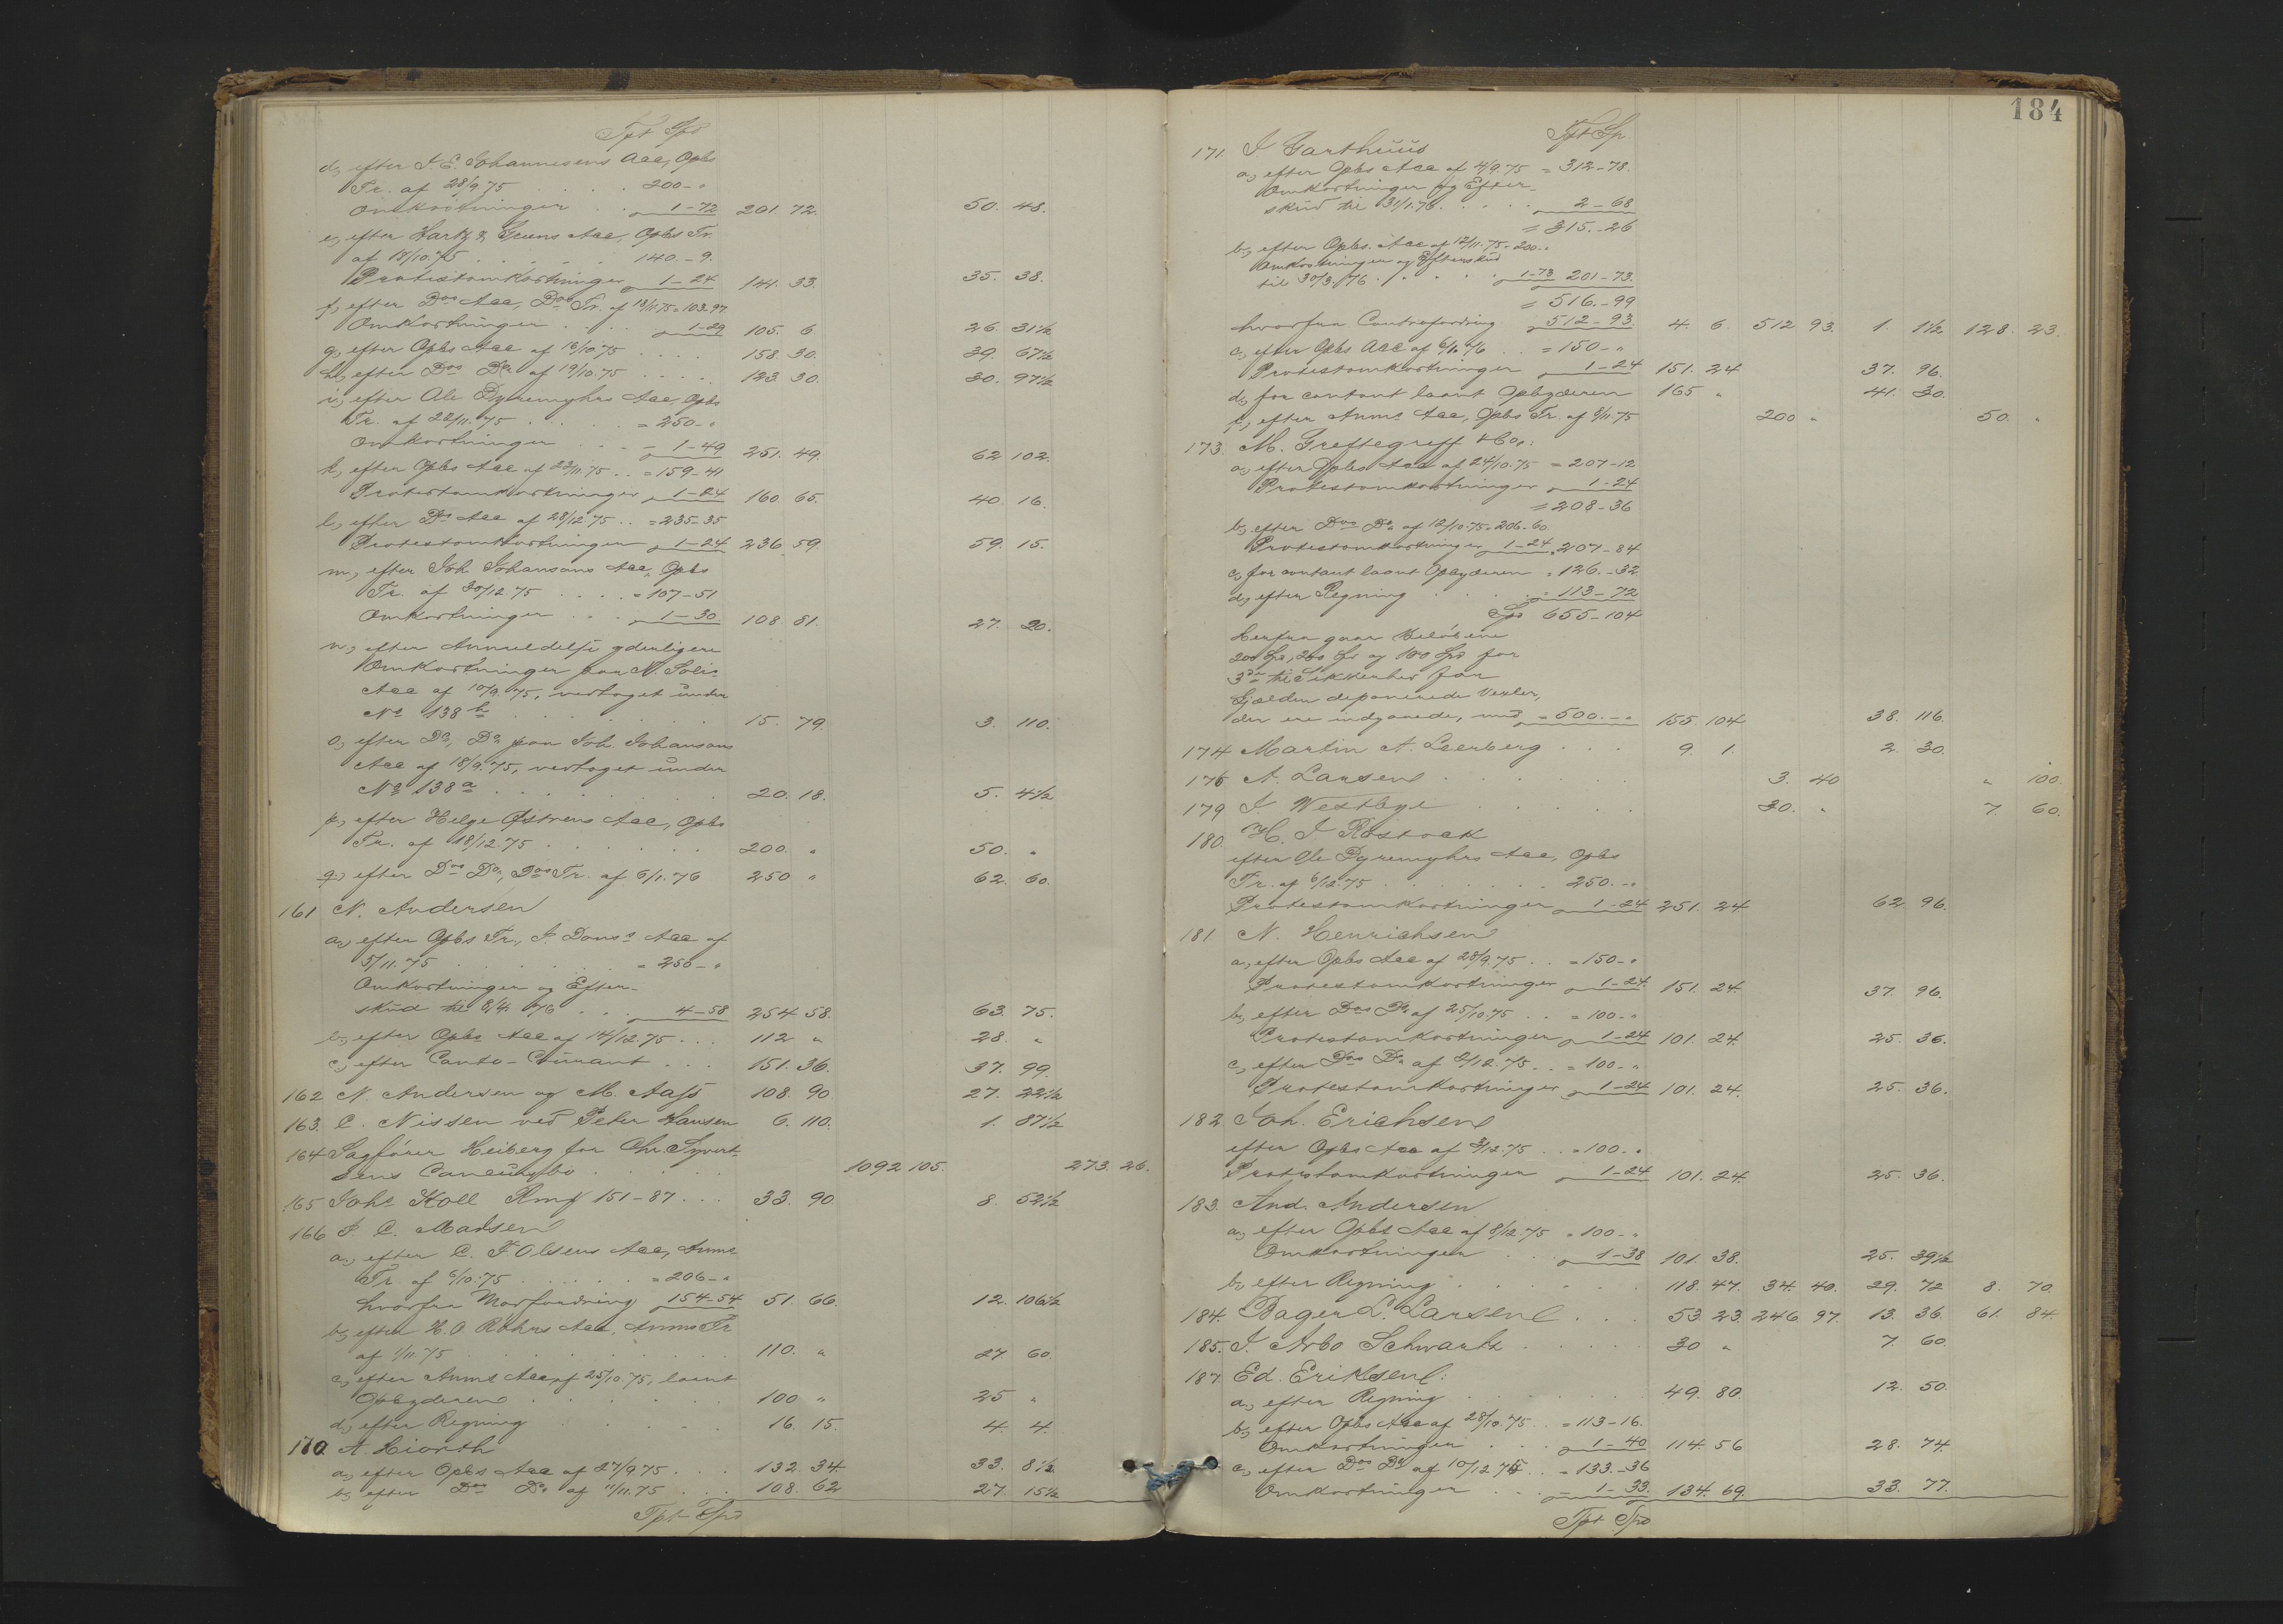 Tpt Spd
d, efter J. E. Johannesens Acc, Opbs
Tr. af 28/9 75 . . . . 200 - "
Omkostninger . . 1-72 201. 72. 50. 48.
e, efter Hartz & Acc, Opbs Tr.
af 18/10.75 . . . . 140.-9.
Protestomkostninger 1-24 141. 33. 35. 38.
f, efter Dos Acc, Dos Tr. af 13/11 75 = 103.97
Omkostninger . . . . 1-29 105. 6. 26. 31½
g, efter Opbs Acc af 16/10 75 . . . . 158. 30. 39. 67½
h, efter Dos Do af 19/10.75 . . . . 123. 30. 30. 97½
i, efter Ole Dyremyhrs Acc, Opbs
Tr. af 22/11.75 . . . . = 250-"
Omkostninger . . = 1-49 251. 49. 62 102.
k, efter Opbs Acc af 22/11.75 . . = 159-41
Protestomkostninger 1-24 160 65. 40 16.
l, efter Dos Acc af 28/12.75 . . = 235-35
Protestomkostninger 1-24 236 59. 59. 15.
m, efter Joh. Johansons Acc, Opbs
Tr. af 30/12.75 . . . . = 107-51
Omkostninger . . . 1-30. 108. 81. 27. 20.
n, efter Anmeldelse yderligere
Omkostninger paa N.
Acc af 10/9.75, vedtaget under
No 138 b . . . . 15. 79. 3. 110.
o, efter Do, Do paa Joh. Johansons
Acc af 18/9.75, vedtaget under
No 138 a . . . . 20. 18. 5. 4½
p, efter Helge Østrens Acc, Opbs
Tr. af 18/12.75 . . . . 200. " 50. "
q, efter Dos Do, Dos Tr. af 6/1.76 250 " 62. 60.
161 N. Andersen
a, efter Opbs Tr., Acc af
5/11.75 . . . . = 250-"
Omkostninger og Efter-
skud til 8/4 76 . . . 4-58 254 58. 63. 75.
b, efter Opbs Acc af 14/12.75 . . . 112 " 28. "
c, efter Conto-Courant . . . 151. 36. 37. 99.
162 N. Andersen og M. Aass 108. 90. 27. 22½
163. C. Nissen ved Peter Hansen 6. 110. 1. 87½
164 Sagfører Heiberg for Chr. Syvert-
sens Concursbo . . . . 1092 105. 273. 26.
165 Johs Koll Rmk 151-87 . . . 33. 90. 8. 52½
166 P. C. Madsen
a, efter C. F. Olsens Acc, Anms
Tr. af 6/10.75 . . . . = 206-"
hvorfra Modfordring 154-54 51. 66. 12. 106½
b, efter H. O. Röhrs Acc, Anms Tr
af 1/11.75 . . . . 110. " 27 60.
c, efter Anms Acc af 25/10.75, laant
Opbyderen . . . . 100 " 25 "
d, efter Regning . . . . 16. 15. 4. 4.
170. A. Hiorth
a, efter Opbs Acc af 27/9 75 . . . 132. 34. 33. 8½
b, efter Dos Do af 11/11.75 . . . 108. 62 27. 15½
Tpt Spd
184
Tpt Sp
171. J Garthuus
a, efter Opbs Acc af 4/9.75 = 312-78.
Omkostninger og Efter-
skud til 31/1.76. . . . . 2-68
= 315.-26
b, efter Opbs. Acc af 12/11.75 = 200-"
Omkostninger og Efterskud
til 30/3.76 . . . . 1-73 201-73.
= 516.-99
hvorfra Contrafordring 512-93. 4. 6. 512 93. 1. 1½ 128. 23.
c, efter Opbs Acc af 6/1.76 . . = 150-"
Protestomkostninger 1-24 151. 24 37. 96.
d, for contant laant Opbyderen 165 " 41. 30.
f, efter Anms Acc, Opbs Tr. af 9/11.75 200 " 50. "
173. M. Greftegreff & Co.:
a, efter Opbs Acc af 24/10.75 = 207-12
Protestomkostninger 1-24
= 208-36
b, efter Dos Do af 12/10.75 = 206-60.
Protestomkostninger 1-24 207-84
c, for contant laant Opbyderen = 126.-32
d, efter Regning . . . . = 113-72
Spd 655-104
Herfra gaar Beløbene
200 Spd, 200 Spd og 100 Spd for
3de til Sikkerhed for
Gjælden deponerede Vexler,
der ere indgaaede, med = 500.-" 155. 104 38. 116.
174 Martin A. Leerberg . . . 9. 1. 2. 30.
176 A. Larsen . . . . 3. 40 " 100.
179 J Westbye . . . . 30. " 7 60.
180. H. J Rostock
efter Ole Dyremyhrs Acc, Opbs
Tr. af 6/12.75 . . . . 250.-"
Protestomkostninger 1-24 251. 24. 62. 96.
181 N. Henrichsen
a, efter Opbs Acc af 28/9.75 . . = 150-"
Protestomkostninger 1-24. 151. 24. 37. 96.
b, efter Dos Do af 25/10.75 . . = 100-"
Protestomkostninger 1-24 101. 24. 25. 36.
c, efter Dos Do af 2/12.75 . . = 100-"
Protestomkostninger 1-24 101. 24. 25. 36.
182. Joh. Erichsen
efter Opbs Acc af 3/12.75 . . = 100-"
Protestomkostninger 1-24 101. 24. 25. 36.
183. And. Andersen
a, efter Opbs Acc af 8/12.75 = 100-"
Omkostninger . . 1-38 101. 38. 25. 39½
b, efter Regning . . . . 118. 47. 34. 40. 29. 72 8. 70.
184. Bager L. Larsen . . . 53. 23. 246. 97. 13. 36. 61. 84.
185. J. Arbo Schwartz . . . . 30 " 7. 60.
187 Ed. Eriksen:
a, efter Regning . . . . 49. 80. 12. 50.
b, efter Opbs Acc af 28/10.75 . . = 113-16.
Omkostninger . . . 1-40 114. 56 28. 74.
c, efter Dos Do af 10/12.75 . . = 133.-36
Omkostninger . . . 1-33. 134. 69. 33. 77.
Tpt Spd